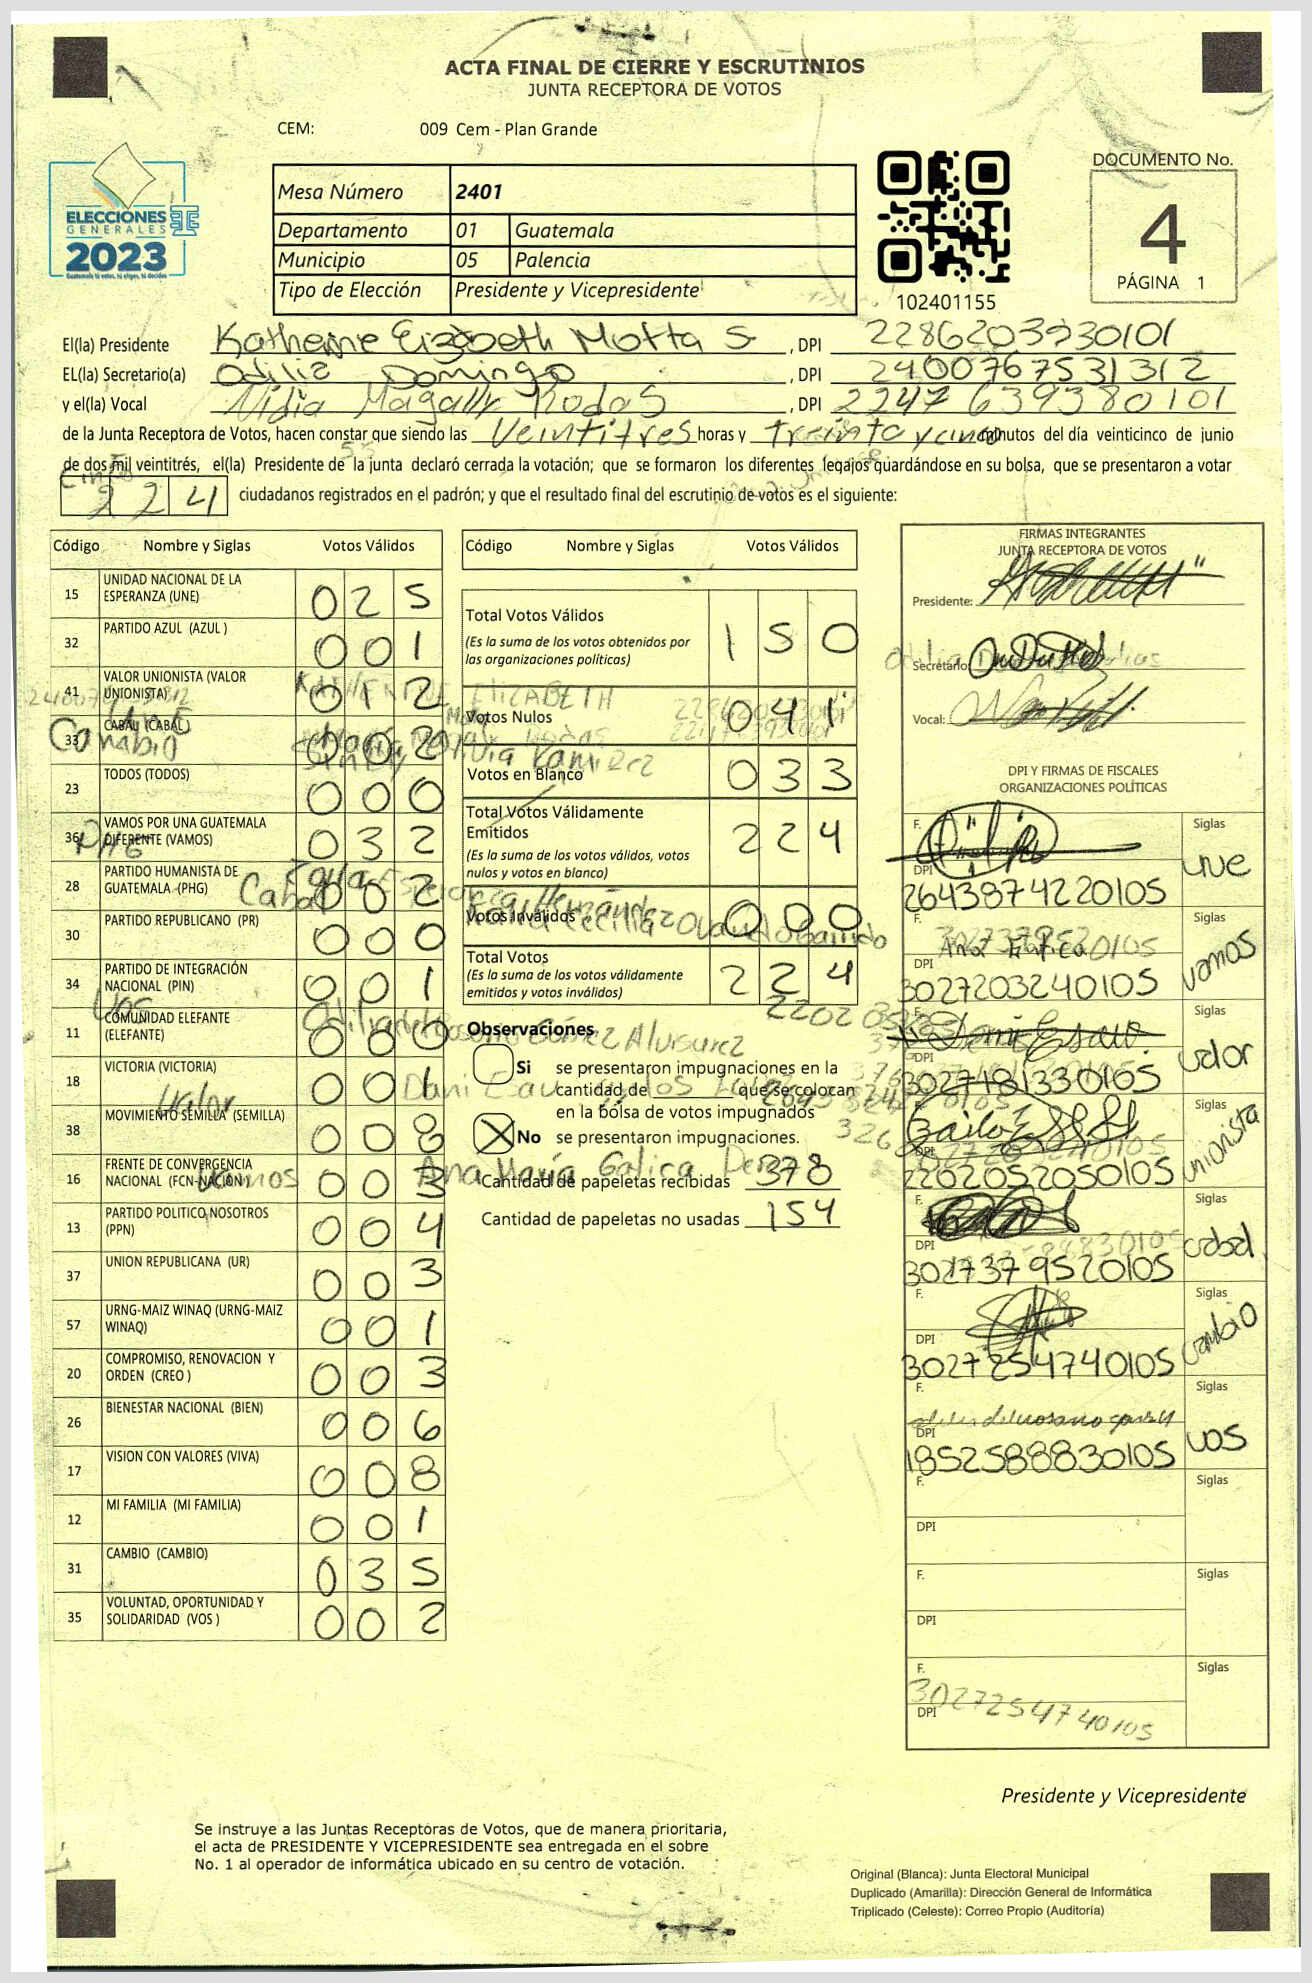 ACTA FINAL DE CIERRE Y ESCRUTINIOS
JUNTA RECEPTORA DE VOTOS
CEM: 009 Cem - Plan Grande
ELECCIONES
GENERALES
2023
Guatemala tú votas, tú eliges, tú decides
Mesa Número 2401
Departamento 01 Guatemala
Municipio 05 Palencia
Tipo de Elección Presidente y Vicepresidente
102401155
DOCUMENTO No.
4
PÁGINA 1
El(la) Presidente Katherine Elizabeth Motta S , DPI 2286203930101
EL(la) Secretario(a) Odilia Domingo , DPI 2400767531312
y el(la) Vocal Nidia Magally Rodas , DPI 2247639380101
de la Junta Receptora de Votos, hacen constar que siendo las Veintitres horas y Treinta y cinco minutos del día veinticinco de junio
de dos mil veintitrés, el(la) Presidente de la junta declaró cerrada la votación; que se formaron los diferentes legajos guardándose en su bolsa, que se presentaron a votar
224 ciudadanos registrados en el padrón; y que el resultado final del escrutinio de votos es el siguiente:
Código Nombre y Siglas Votos Válidos
15 UNIDAD NACIONAL DE LA ESPERANZA (UNE) 025
32 PARTIDO AZUL (AZUL ) 001
41 VALOR UNIONISTA (VALOR UNIONISTA) 012
33 CABAL (CABAL) 002
23 TODOS (TODOS) 000
36 VAMOS POR UNA GUATEMALA DIFERENTE (VAMOS) 032
28 PARTIDO HUMANISTA DE GUATEMALA (PHG) 002
30 PARTIDO REPUBLICANO (PR) 000
34 PARTIDO DE INTEGRACIÓN NACIONAL (PIN) 001
11 COMUNIDAD ELEFANTE (ELEFANTE) 000
18 VICTORIA (VICTORIA) 001
38 MOVIMIENTO SEMILLA (SEMILLA) 008
16 FRENTE DE CONVERGENCIA NACIONAL (FCN-NACION) 003
13 PARTIDO POLITICO NOSOTROS (PPN) 004
37 UNION REPUBLICANA (UR) 003
57 URNG-MAIZ WINAQ (URNG-MAIZ WINAQ) 001
20 COMPROMISO, RENOVACION Y ORDEN (CREO ) 003
26 BIENESTAR NACIONAL (BIEN) 006
17 VISION CON VALORES (VIVA) 008
12 MI FAMILIA (MI FAMILIA) 001
31 CAMBIO (CAMBIO) 035
35 VOLUNTAD, OPORTUNIDAD Y SOLIDARIDAD (VOS ) 002
Código Nombre y Siglas Votos Válidos
Total Votos Válidos 150
(Es la suma de los votos obtenidos por
las organizaciones políticas)
Votos Nulos 041
Votos en Blanco 033
Total Votos Válidamente
Emitidos 224
(Es la suma de los votos válidos, votos
nulos y votos en blanco)
Votos Inválidos 000
Total Votos 224
(Es la suma de los votos válidamente
emitidos y votos inválidos)
Observaciones
Si se presentaron impugnaciones en la
cantidad de que se colocan
en la bolsa de votos impugnados
No se presentaron impugnaciones.
Cantidad de papeletas recibidas 378
Cantidad de papeletas no usadas 154
FIRMAS INTEGRANTES
JUNTA RECEPTORA DE VOTOS
Presidente:
Secretario:
Vocal:
DPI Y FIRMAS DE FISCALES
ORGANIZACIONES POLÍTICAS
F. Siglas
DPI 2643874220105 une
F. Siglas
DPI 3027203240105 vamos
F. Siglas
DPI 3027181330105 valor
F. Siglas
DPI 2202052050105 unionista
F. Siglas
DPI 3027379520105 cabal
F. Siglas
DPI 3027254740105 cambio
F. Siglas
DPI 1852588830105 VOS
F. Siglas
DPI
F. Siglas
DPI
F. Siglas
3027254740105
DPI
Presidente y Vicepresidente
Se instruye a las Juntas Receptoras de Votos, que de manera prioritaria,
el acta de PRESIDENTE Y VICEPRESIDENTE sea entregada en el sobre
No. 1 al operador de informática ubicado en su centro de votación.
Original (Blanca): Junta Electoral Municipal
Duplicado (Amarilla): Dirección General de Informática
Triplicado (Celeste): Correo Propio (Auditoría)